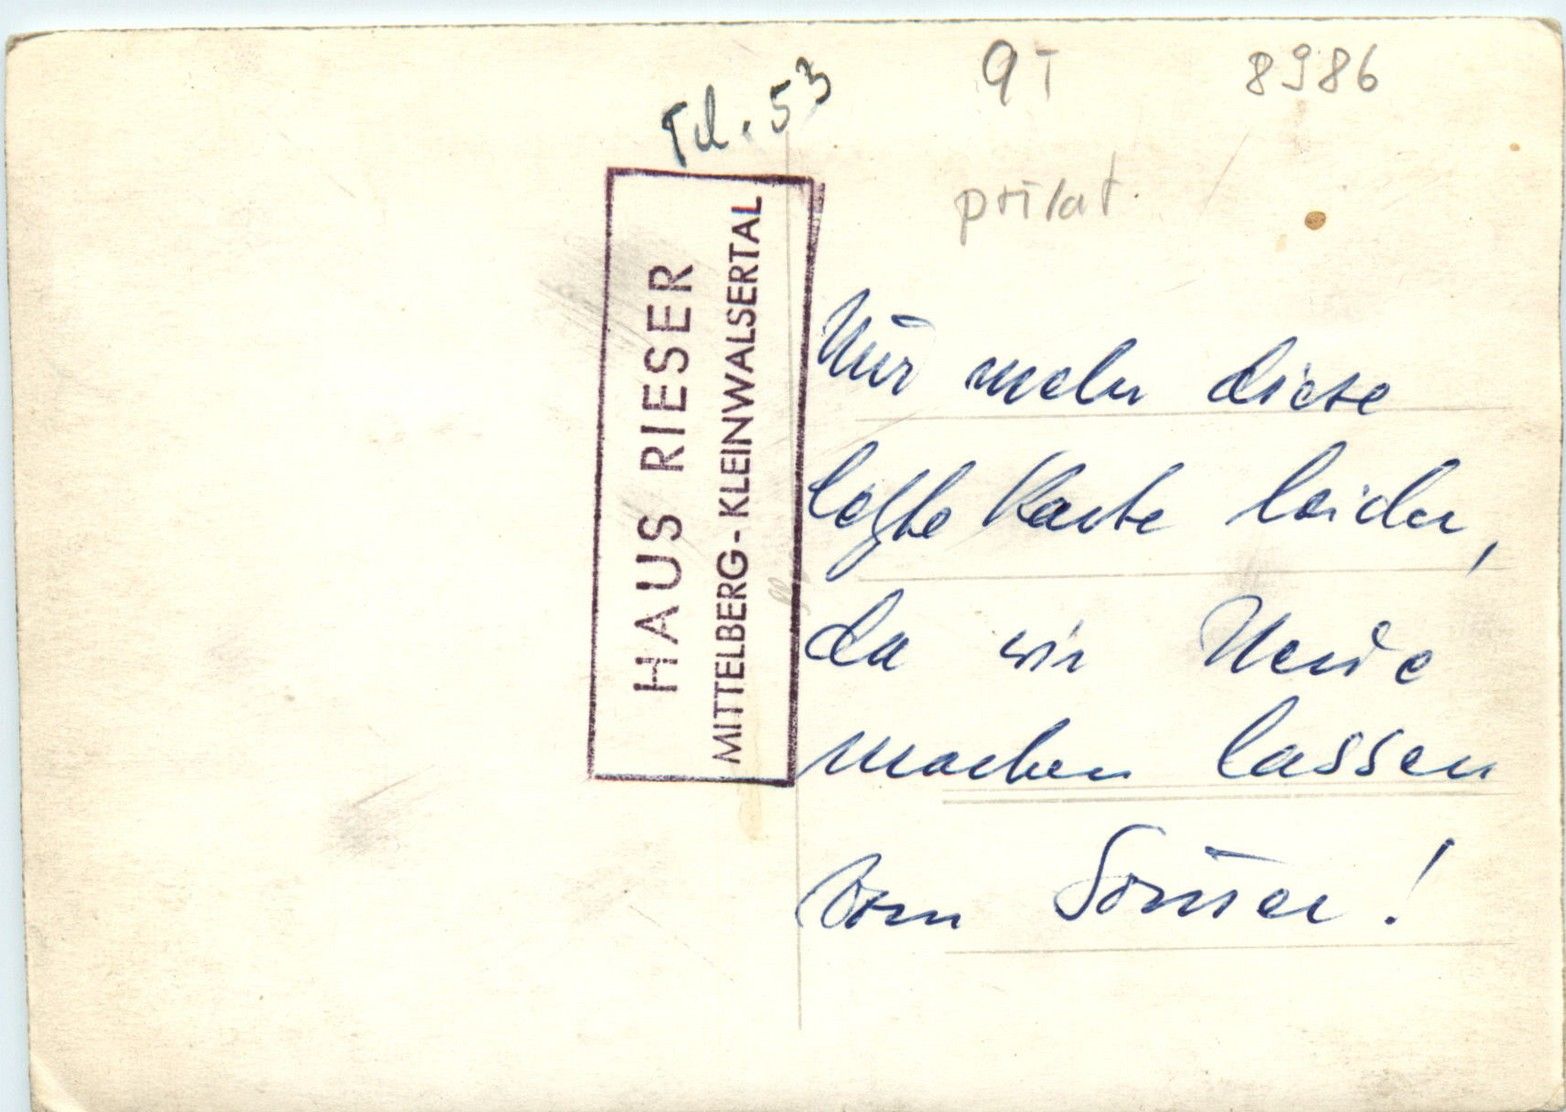 Tel. 53
9T 8986
privat
HAUS RIESER
MITTELBERG-KLEINWALSERTAL
Nur mehr diese
letzte Karte leider,
da wir Neue
machen lassen
vom Som̄er!